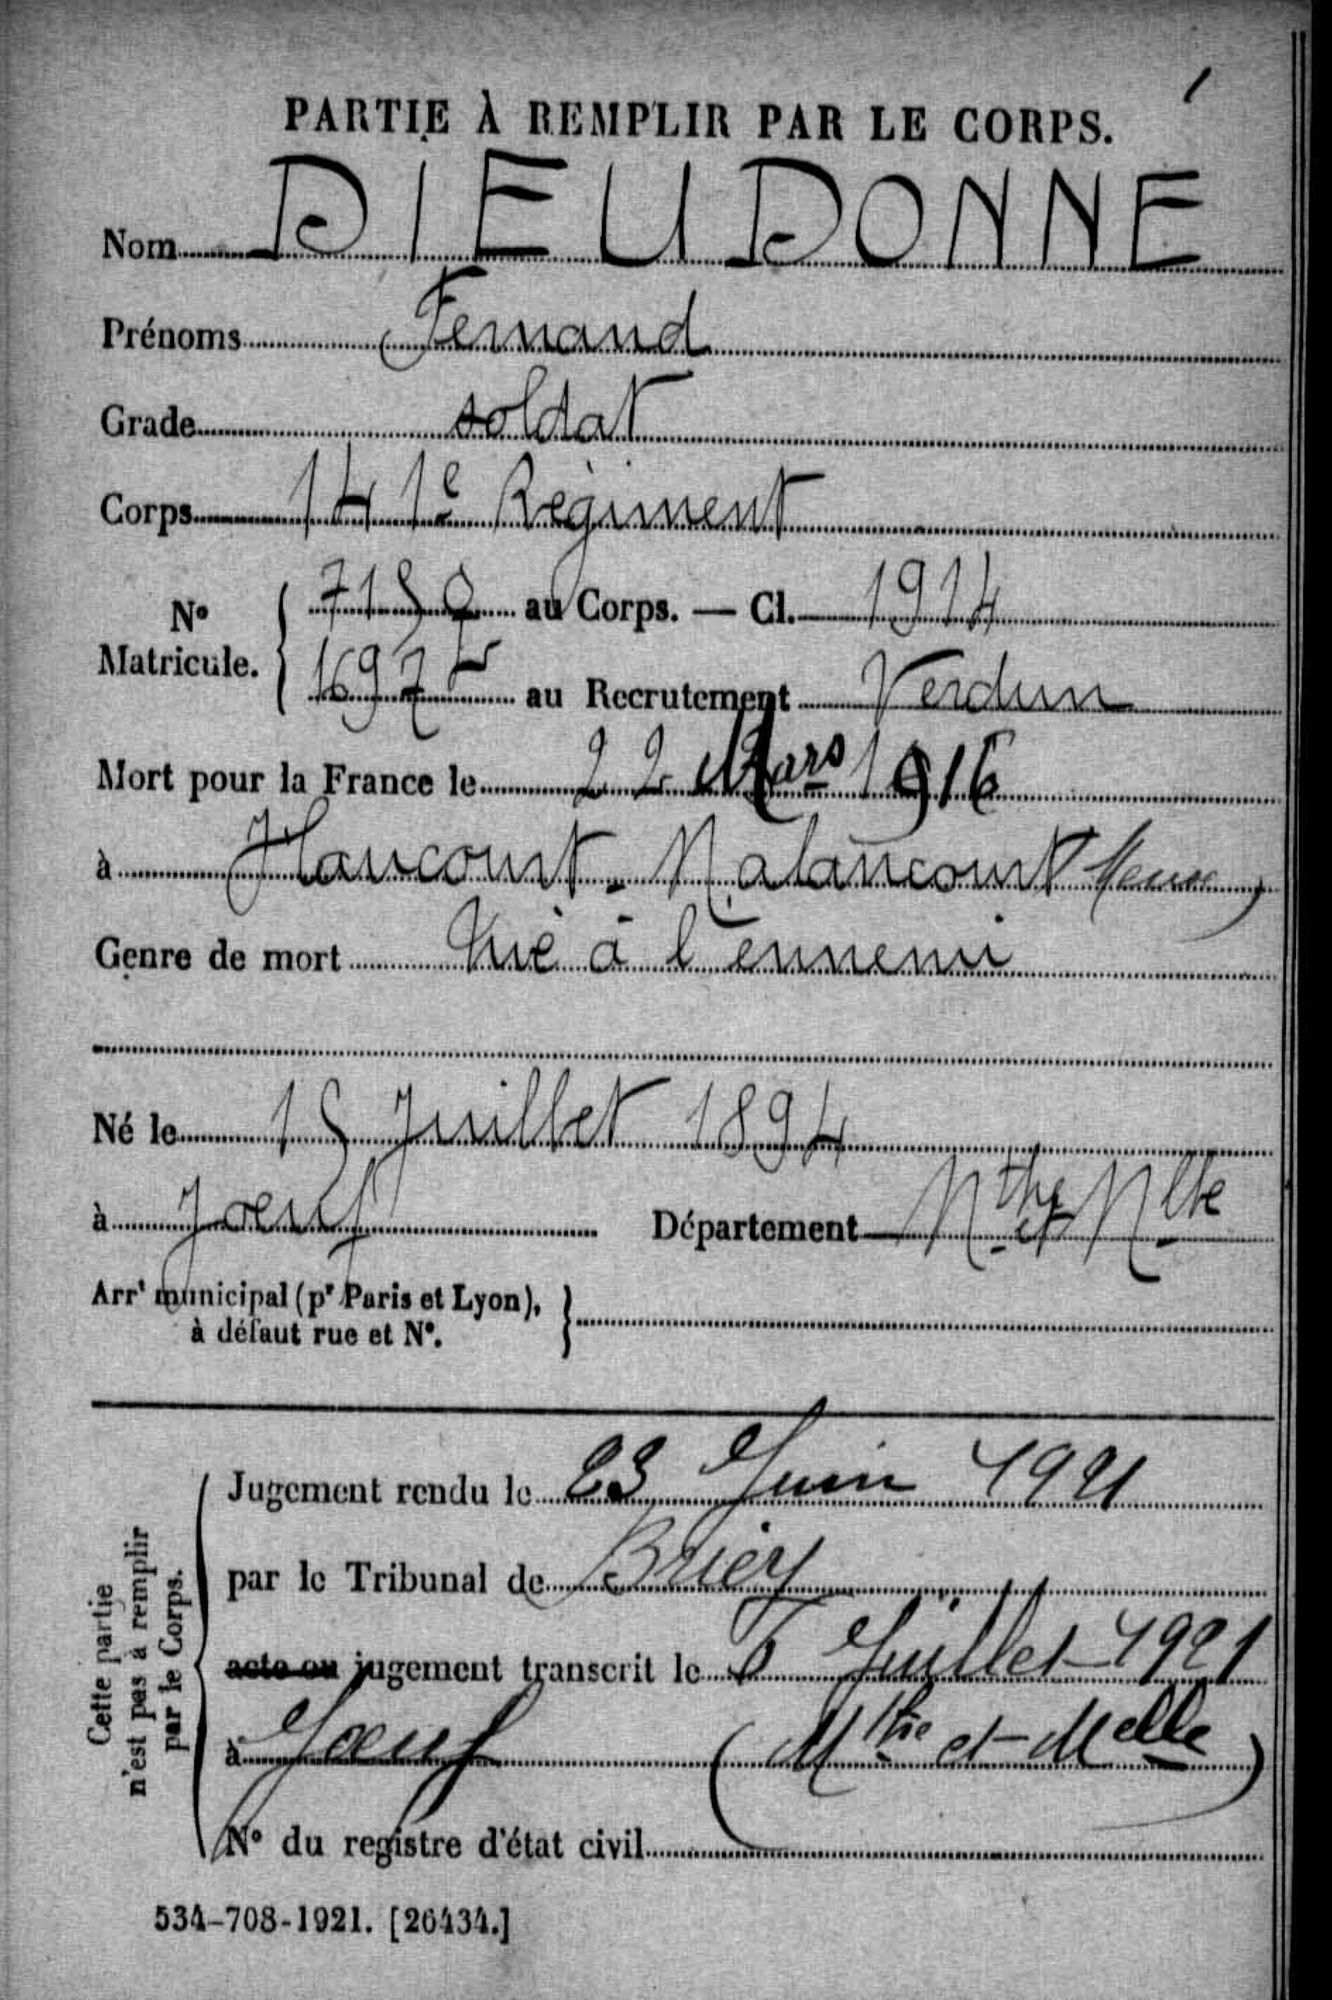 PARTIE À REMPLIR PAR LE CORPS.
Nom DIEUDONNE
Prénoms Fernand
Grade soldat
Corps 141e Régiment
No Matricule. 7159 au Corps. — Cl. 1914
1697 au Recrutement Verdun
Mort pour la France le 22 Mars 1916
à Haucourt-Malancourt Meuse
Genre de mort Tué à l'ennemi
Né le 15 Juillet 1894
à Joeuf Département Mthe et Mlle
Arrt municipal (pr Paris et Lyon),
à défaut rue et No.
Cette partie
n'est pas à remplir
par le Corps.
Jugement rendu le 23 Juin 1921
par le Tribunal de Briey
acte ou jugement transcrit le Juillet 1921
à Joeuf (Mthe et Melle)
No du registre d'état civil
534-708-1921. [26434.]